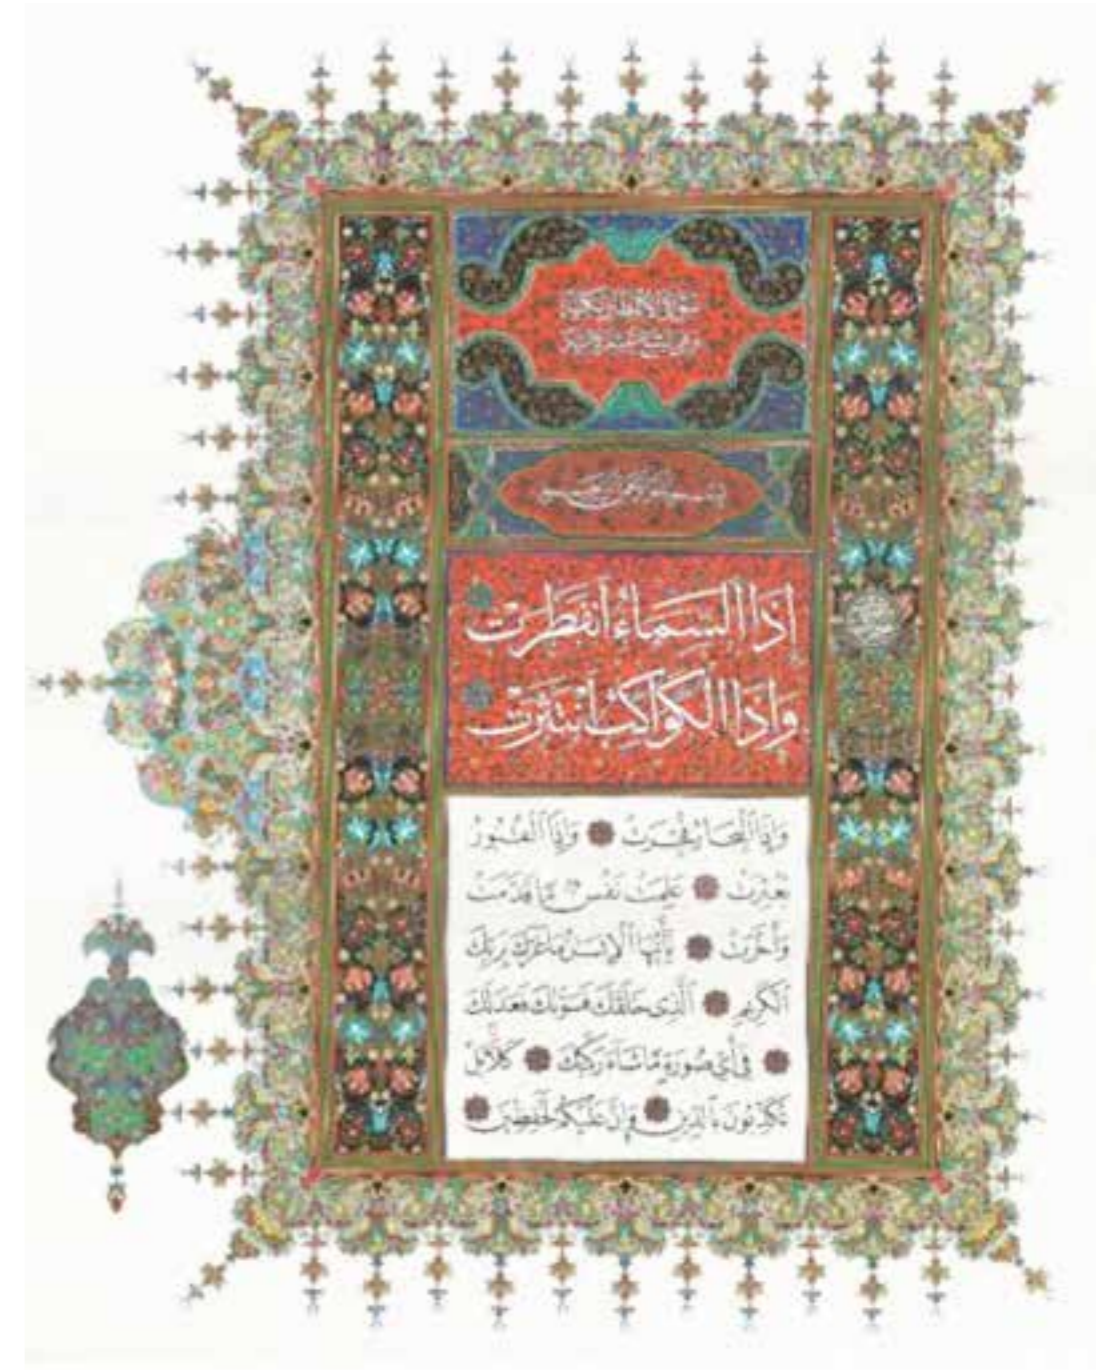 سورة الانفطار مكية
وهي تسع عشرة آية
بسم الله الرحمن الرحيم
إِذَا ٱلسَّمَاءُ ٱنفَطَرَتْ
وَإِذَا ٱلْكَوَاكِبُ ٱنتَثَرَتْ
وَإِذَا ٱلْبِحَارُ فُجِّرَتْ وَإِذَا ٱلْقُبُورُ
بُعْثِرَتْ عَلِمَتْ نَفْسٌ مَّا قَدَّمَتْ
وَأَخَّرَتْ يَٰٓأَيُّهَا ٱلْإِنسَٰنُ مَا غَرَّكَ بِرَبِّكَ
ٱلْكَرِيمِ ٱلَّذِى خَلَقَكَ فَسَوَّىٰكَ فَعَدَلَكَ
فِىٓ أَىِّ صُورَةٍ مَّا شَآءَ رَكَّبَكَ كَلَّا بَلْ
تُكَذِّبُونَ بِٱلدِّينِ وَإِنَّ عَلَيْكُمْ لَحَٰفِظِينَ